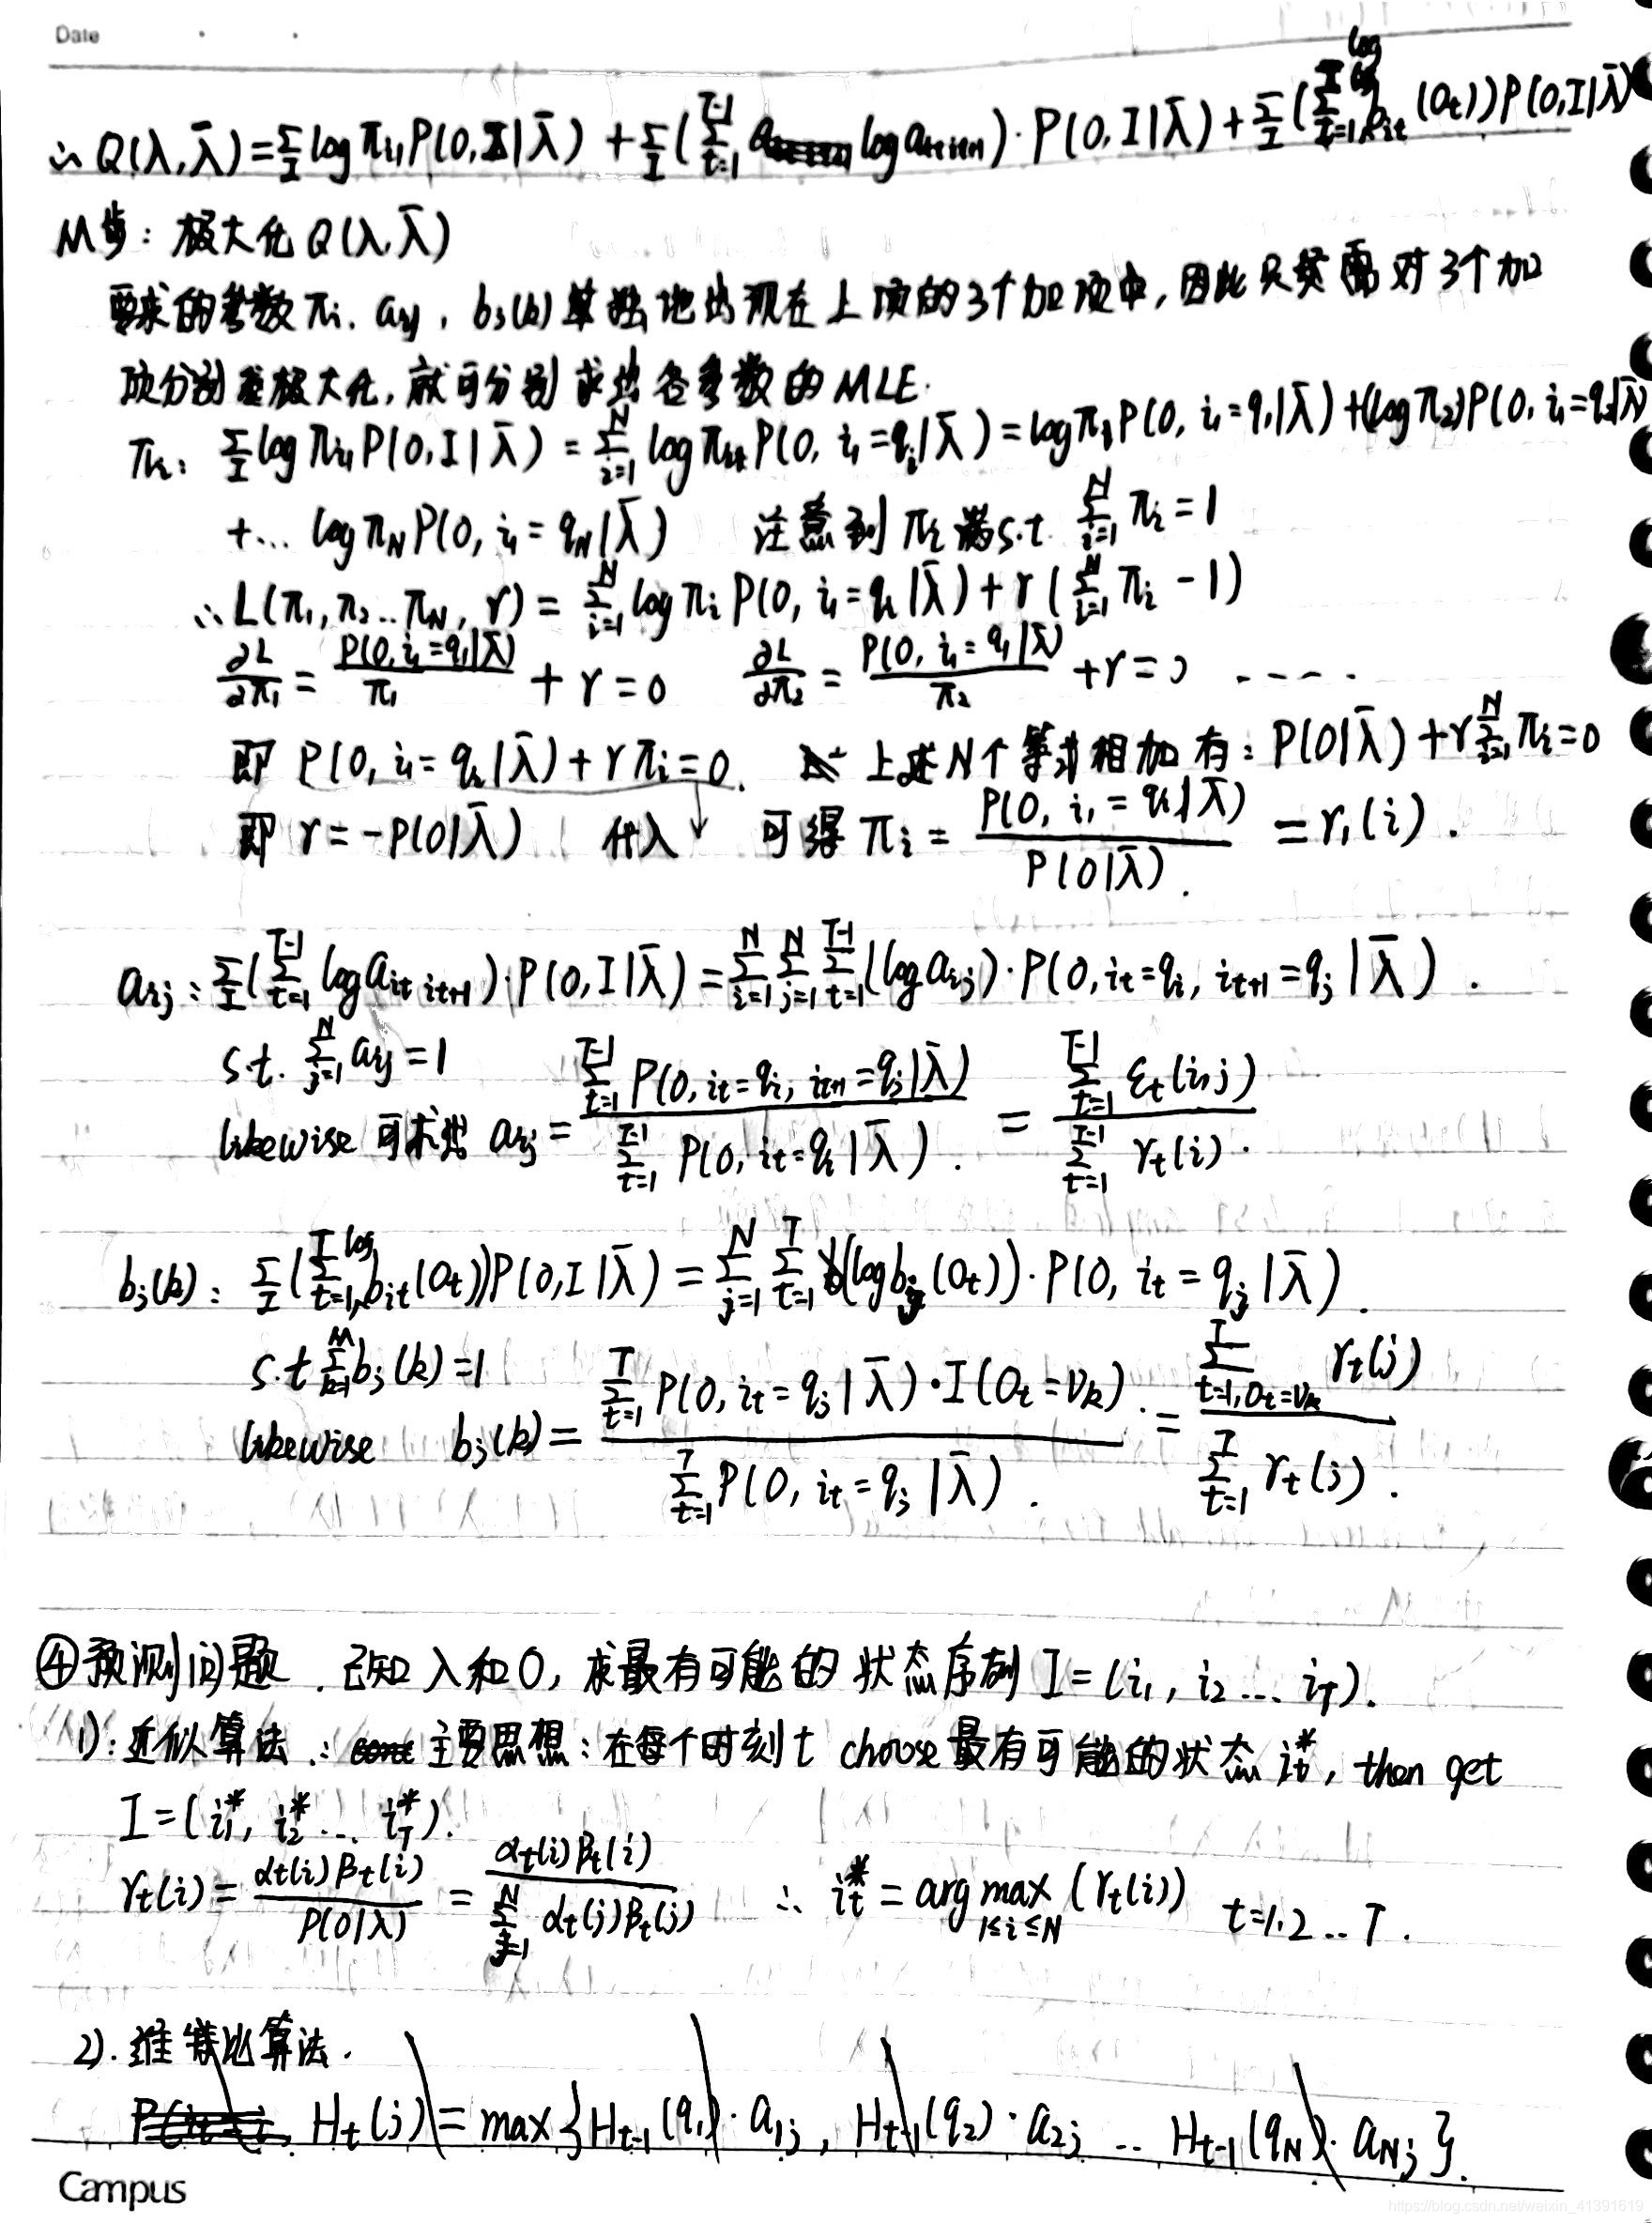 Date
∴ Q(λ,λ̄) = Σ_I log π_{i1} P(O,I|λ̄) + Σ_I (Σ_{t=1}^{T-1} log a_{it it+1})·P(O,I|λ̄) + Σ_I (Σ_{t=1}^{T} log b_{it}(O_t)) P(O,I|λ̄)
M步: 极大化 Q(λ,λ̄)
要求的参数 π_i, a_{ij}, b_j(k) 单独地出现在上项的3个加项中,因此只须要对3个加
项分别 极大化,就可分别求出各参数的MLE.
π_i: Σ_I log π_{i1} P(O,I|λ̄) = Σ_{i=1}^{N} log π_i P(O, i_1=q_i|λ̄) = log π_1 P(O, i_1=q_1|λ̄) + (log π_2) P(O, i_1=q_2|λ̄)
+... log π_N P(O, i_1=q_N|λ̄) 注意到 π_i 满 s.t. Σ_{i=1}^{N} π_i = 1
∴ L(π_1, π_2 .. π_N, γ) = Σ_{i=1}^{N} log π_i P(O, i_1=q_i|λ̄) + γ(Σ_{i=1}^{N} π_i - 1)
∂L/∂π_1 = P(O, i_1=q_1|λ̄)/π_1 + γ = 0 ∂L/∂π_2 = P(O, i_1=q_1|λ̄)/π_2 + γ = 0 -----
即 P(O, i_1=q_i|λ̄) + γπ_i = 0. 上述N个等式相加有: P(O|λ̄) + γ Σ_{i=1}^{N} π_i = 0
即 γ = -P(O|λ̄) 代入↓ 可得 π_i = P(O, i_1=q_i|λ̄)/P(O|λ̄) = γ_1(i).
a_{ij}: Σ_I (Σ_{t=1}^{T-1} log a_{it it+1})·P(O,I|λ̄) = Σ_{i=1}^{N} Σ_{j=1}^{N} Σ_{t=1}^{T-1} (log a_{ij})·P(O, i_t=q_i, i_{t+1}=q_j|λ̄).
s.t. Σ_{j=1}^{N} a_{ij} = 1
likewise 可求出 a_{ij} = Σ_{t=1}^{T-1} P(O, i_t=q_i, i_{t+1}=q_j|λ̄) / Σ_{t=1}^{T-1} P(O, i_t=q_i|λ̄). = Σ_{t=1}^{T-1} ε_t(i,j) / Σ_{t=1}^{T-1} γ_t(i).
b_j(k): Σ_I (Σ_{t=1}^{T} log b_{it}(O_t)) P(O,I|λ̄) = Σ_{j=1}^{N} Σ_{t=1}^{T} (log b_j(O_t))·P(O, i_t=q_j|λ̄).
s.t Σ_{k=1}^{M} b_j(k) = 1
likewise b_j(k) = Σ_{t=1}^{T} P(O, i_t=q_j|λ̄)·I(O_t=v_k) / Σ_{t=1}^{T} P(O, i_t=q_j|λ̄). = Σ_{t=1,O_t=v_k}^{T} γ_t(j) / Σ_{t=1}^{T} γ_t(j).
④预测问题. 已知λ和O,求最有可能的状态序列 I=(i_1, i_2 ... i_T).
1): 近似算法: 主要思想:在每个时刻t choose最有可能的状态 i_t^*, then get
I=(i_1^*, i_2^* ... i_T^*).
γ_t(i) = α_t(i)β_t(i)/P(O|λ) = α_t(i)β_t(i)/Σ_{j=1}^{N} α_t(j)β_t(j) ∴ i_t^* = arg max_{1≤i≤N} (γ_t(i)) t=1,2...T.
2). 维特比算法.
H_t(j) = max{H_{t-1}(q_1)·a_{1j}, H_{t-1}(q_2)·a_{2j} ... H_{t-1}(q_N)·a_{Nj}}.
Campus
https://blog.csdn.net/weixin_41391619